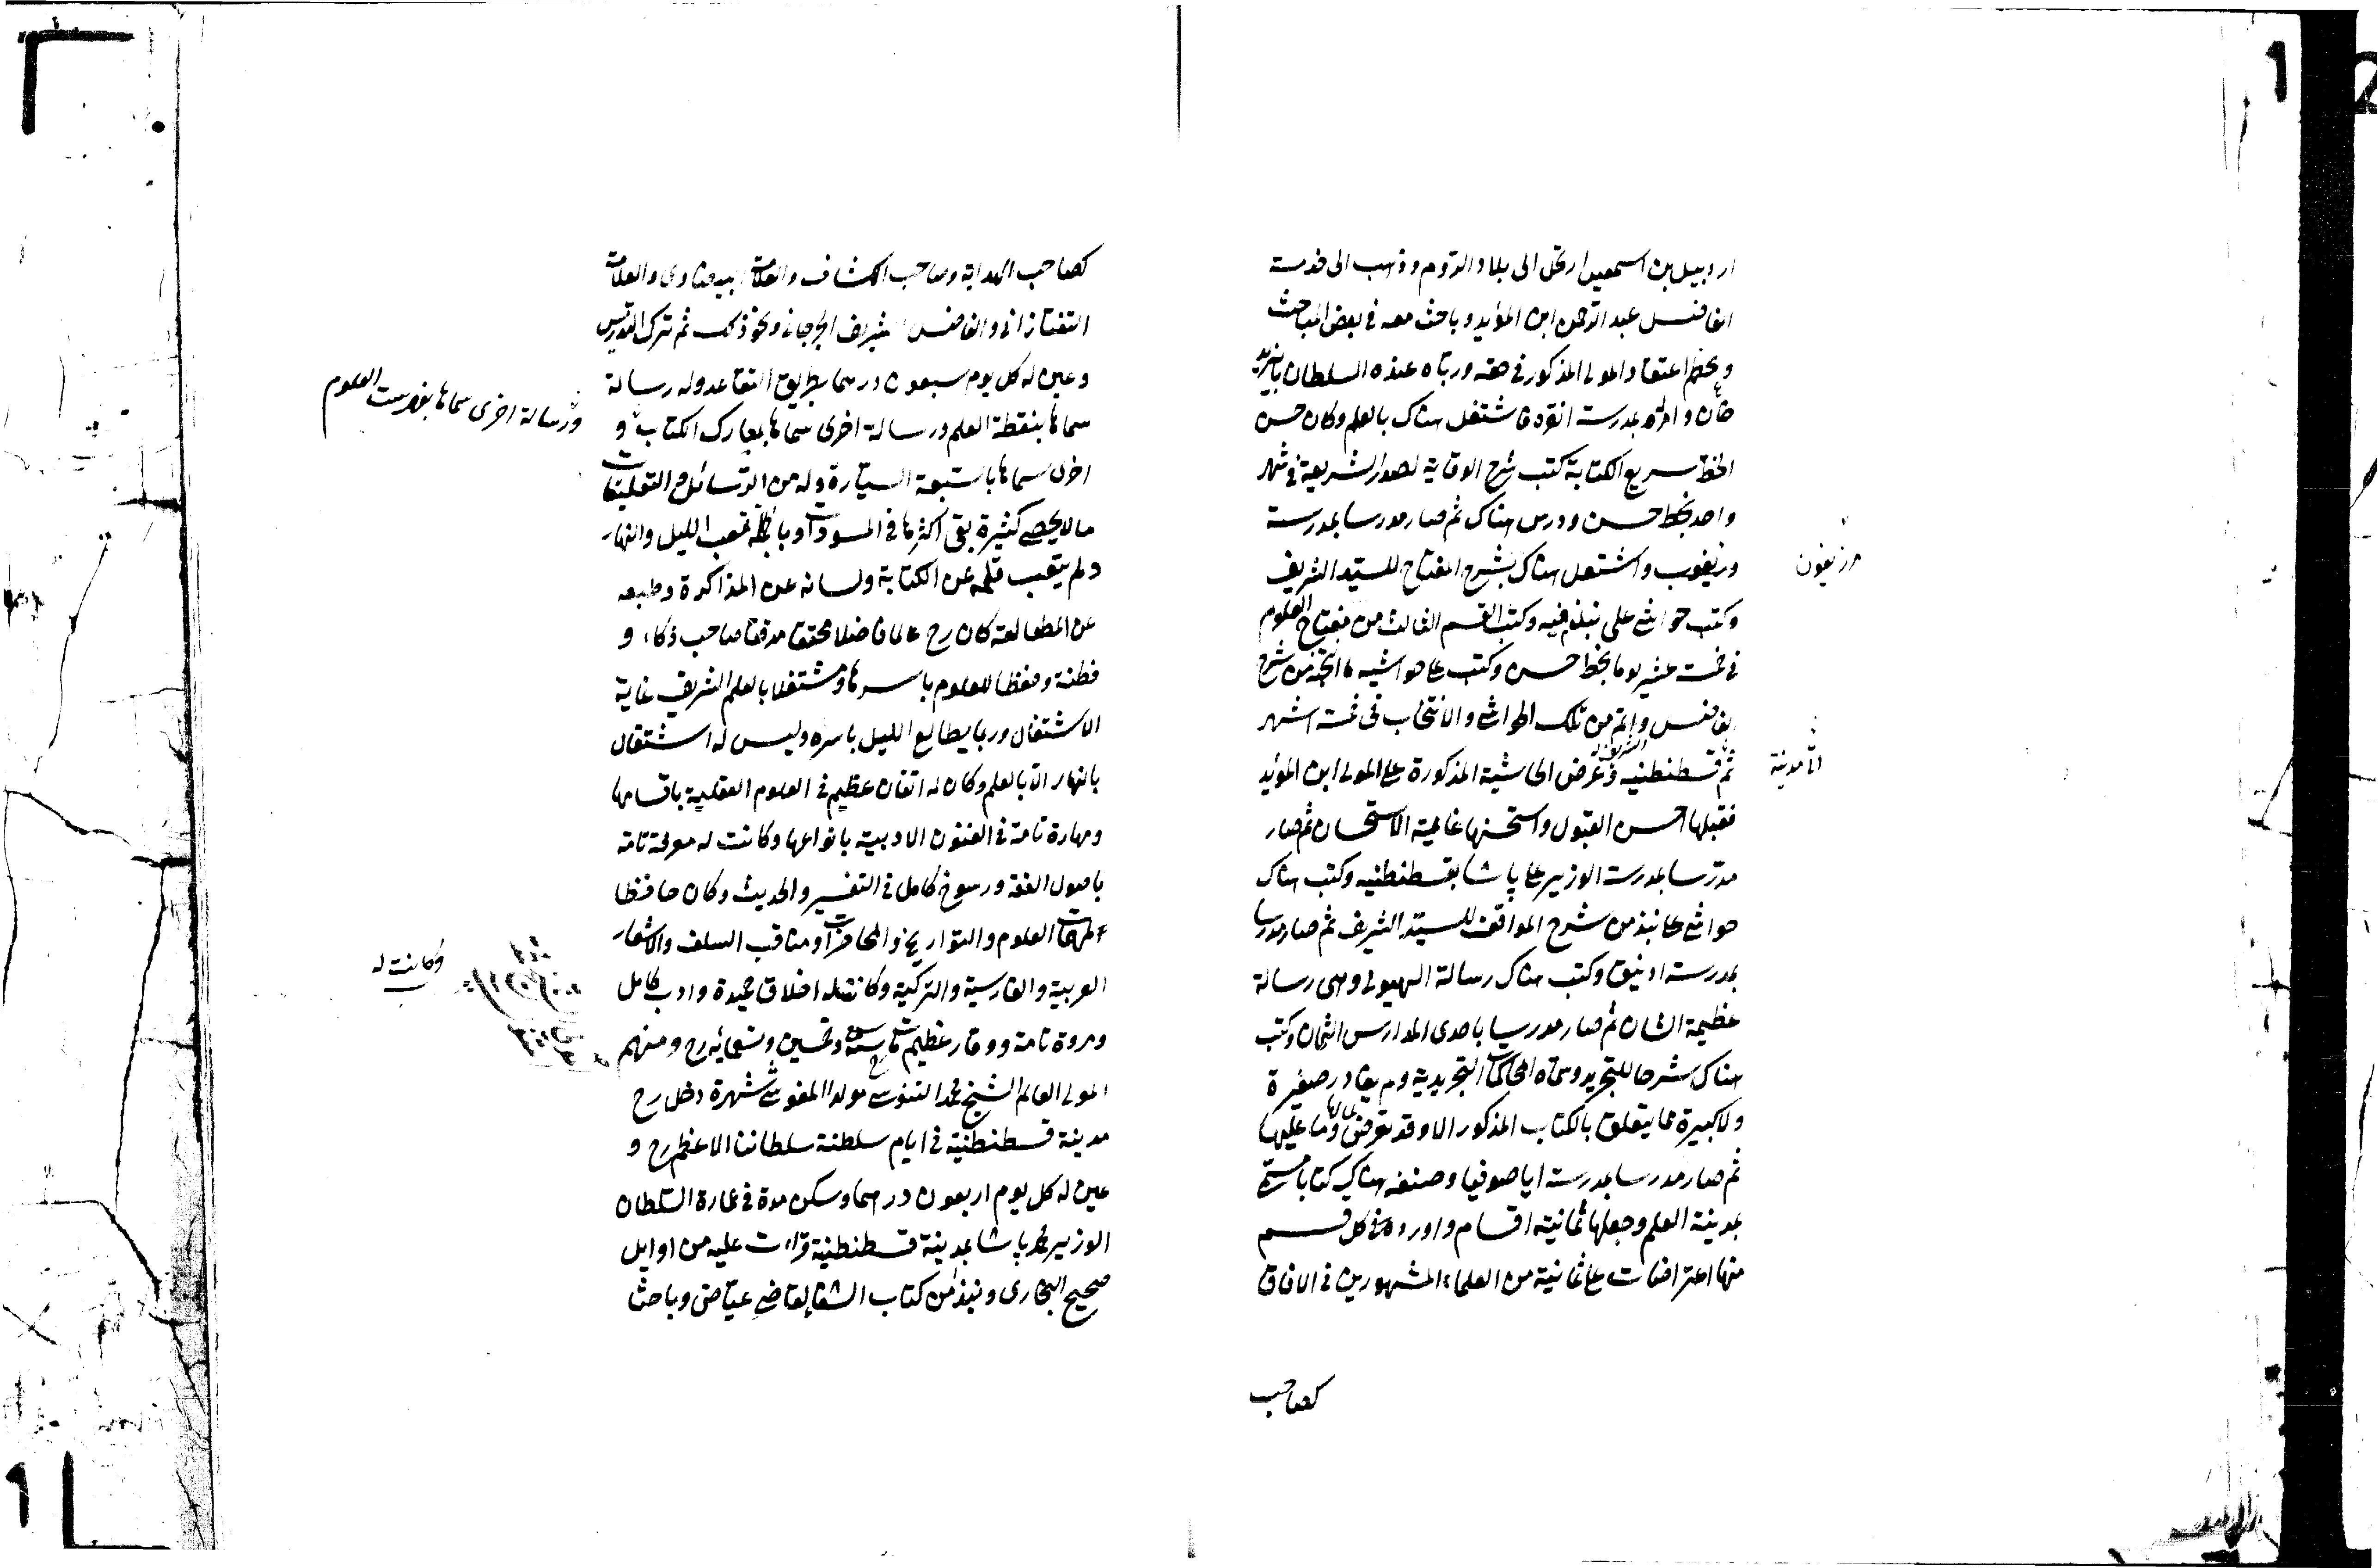 اردبيل بن اسمعيل ارتحل الى بلاد الروم وذهب الى خدمت
الفاضل عبد الرحمن ابن المؤيد وباحث معه في بعض المباحث
وعظم اعتقاد المولى المذكور في حقه ورباه عنده السلطان بايزيد
خان وامره بمدرسة انقره فاشتغل هناك بالعلم وكان حسن
الخط سريع الكتابة كتب شرح الوقاية لصدر الشريعة في شهر
واحد بخط حسن ودرس هناك ثم صار مدرسا بمدرسة
ومرزيفون واشتغل هناك بشرح المفتاح للسيد الشريف
مرزيفون
وكتب حواشي على نبذ فيه وكتب القسم الثالث من مفتاح العلوم
في خمسة عشر يوما بخط حسن وكتب على حواشيه ما انتخبه من شرح
الفاضل واتم من تلك الحواشي والانتخاب في خمسة اشهر
ثم قسطنطنيه وعرض الحاشية المذكورة على المولى ابن المؤيد
الى مدينة
فقبلها احسن القبول واستحسنها غاية الاستحسان ثم صار
مدرسا بمدرسة الوزير على پاشا بقسطنطنيه وكتب هناك
حواشي على نبذ من شرح المواقف للسيد الشريف ثم صار مدرسا
بمدرسة ازنيق وكتب هناك رسالة الهيولى وهى رسالة
عظيمة الشان ثم صار مدرسا باحدى المدارس الثمان وكتب
هناك شرحا للتجريد وسماه المحاكمات التجريدية ولم يغادر صغيرة
ولا كبيرة مما يتعلق بالكتاب المذكور الا وقد تعرض لما لها وما عليها
ثم صار مدرسا بمدرسة ايا صوفيا وصنف هناك كتابا مسمى
بمدينة العلم وجعلها ثمانية اقسام واورد في كل قسم
منها اعتراضات على ثمانية من العلماء المشهورين في الافاق
كصاحب
كصاحب الهداية وصاحب الكشاف والعلامة البيضاوى والعلامة
التفتازانى والفاضل الشريف الجرجانى ونحو ذلك ثم ترك التدريس
وعين له كل يوم سبعون درهما بطريق التقاعد وله رسالة
سماها بنقطة العلم ورسالة اخرى سماها بمعارك الكتاب و
ورسالة اخرى سماها بفهرست العلوم
اخرى سماها بالسبعة السيارة وله من الرسائل والتعليقات
ما لا يحصى كثيرة بقى اكثرها في المسودات وبالجملة تعب الليل والنهار
ولم يتعب قلمه عن الكتابة ولسانه عن المذاكرة وطبعه
عن المطالعة كان رح عالما فاضلا محققا مدققا صاحب ذكاء و
فطنة وحفظا للعلوم باسرها ومشتغلا بالعلم الشريف غاية
الاشتغال وربما يطالع الليل باسره وليس له اشتغال
بالنهار الا بالعلم وكان له اتقان عظيم في العلوم العقلية باقسامها
ومهارة تامة في الفنون الادبية بانواعها وكانت له معرفة تامة
باصول الفقه ورسوخ كامل في التفسير والحديث وكان حافظا
لمهمات العلوم والتواريخ والمحاضرات ومناقب السلف والاشعار
العربية والفارسية والتركية وكانت له اخلاق حميدة وادب كامل
وكانت له
ومروة تامة ووقار عظيم مات سنة وخمسين وتسعمائه رح ومنهم
المولى العالم الشيخ محمد التونسى مولدا المغوشى شهرة دخل رح
مدينة قسطنطنية في ايام سلطنة سلطاننا الاعظم رح و
عين له كل يوم اربعون درهما وسكن مدة في عمارة السلطان
الوزير محمد پاشا بمدينة قسطنطنية قراءت عليه من اوايل
صحيح البخارى ونبذا من كتاب الشفا لقاضى عياض وباحث